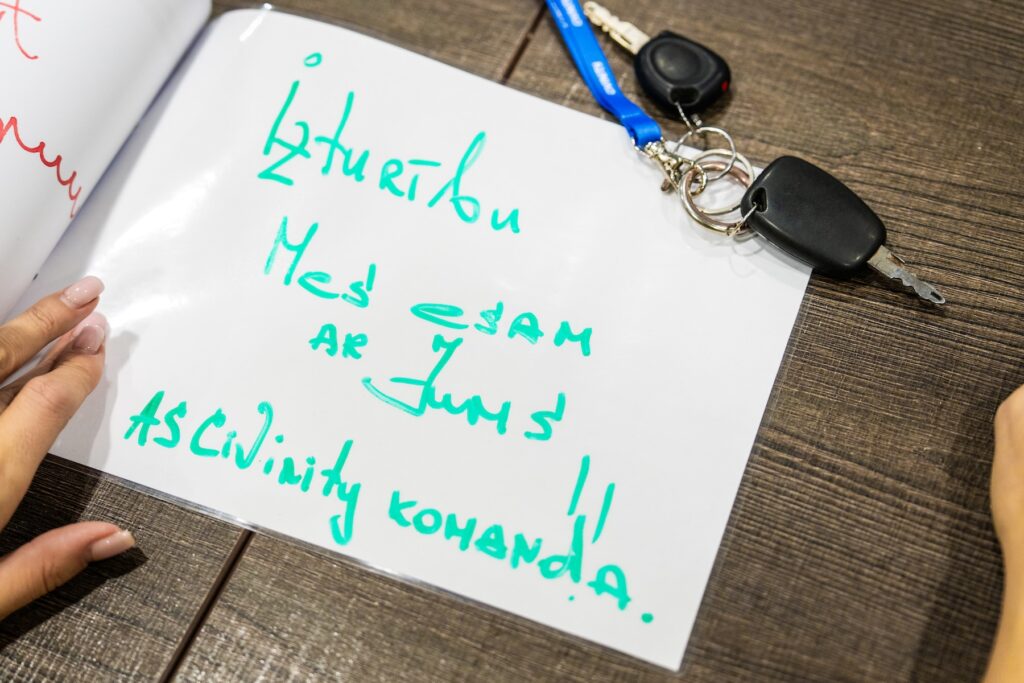 Izturību
Mēs esam
AR Jums
!!
AS Civinity KOMANDA.